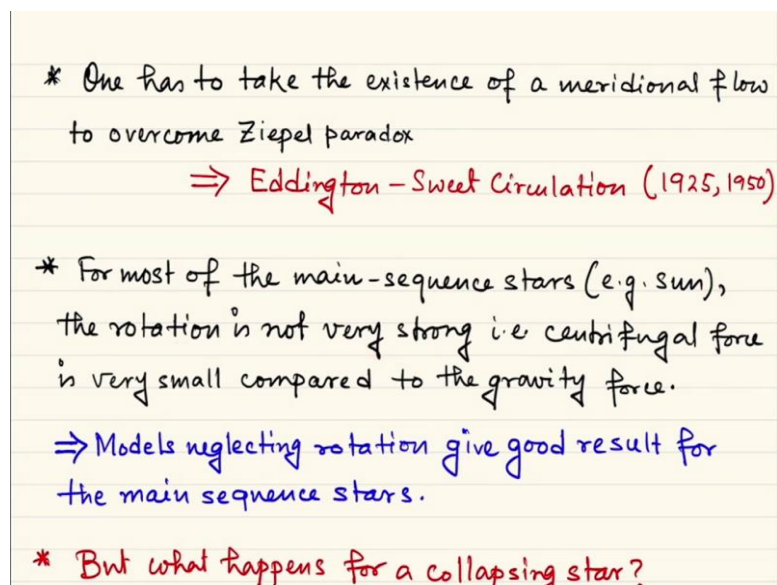 * One has to take the existence of a meridional flow
to overcome Ziepel paradox
⇒ Eddington - Sweet Circulation (1925, 1950)
* For most of the main-sequence stars (e.g. sun),
the rotation is not very strong i.e centrifugal force
is very small compared to the gravity force.
⇒ Models neglecting rotation give good result for
the main sequence stars.
* But what happens for a collapsing star?